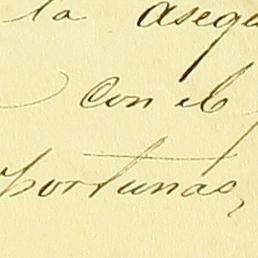 la asegu
con el
portunas,